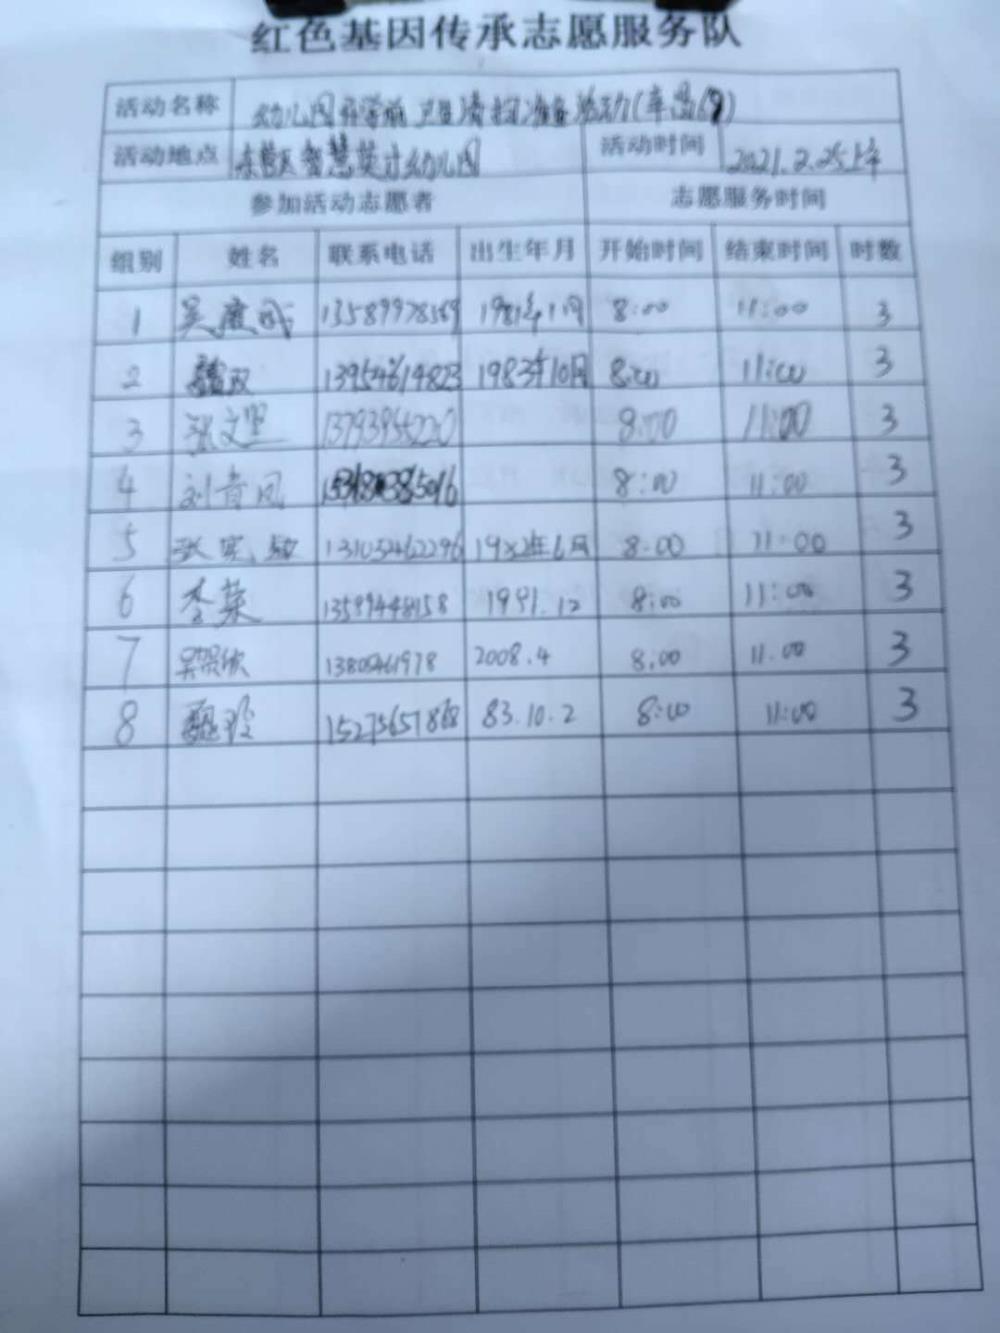 红色基因传承志愿服务队
活动名称 幼儿园开学前卫生清扫准备活动
活动地点 东营区智慧英才幼儿园 活动时间 2021.2.25上午
参加活动志愿者 志愿服务时间
组别 姓名 联系电话 出生年月 开始时间 结束时间 时数
1 吴 13589978569 1981年1月 8:00 11:00 3
2 13954614823 1983年10月 8:00 11:00 3
3 张文 13793955220 8:00 11:00 3
4 刘 8:00 11:00 3
5 张 8:00 11:00 3
6 李 13589448158 1991.12 8:00 11:00 3
7 吴 13805461978 2008.4 8:00 11:00 3
8 魏玲 15275657868 83.10.2 8:00 11:00 3